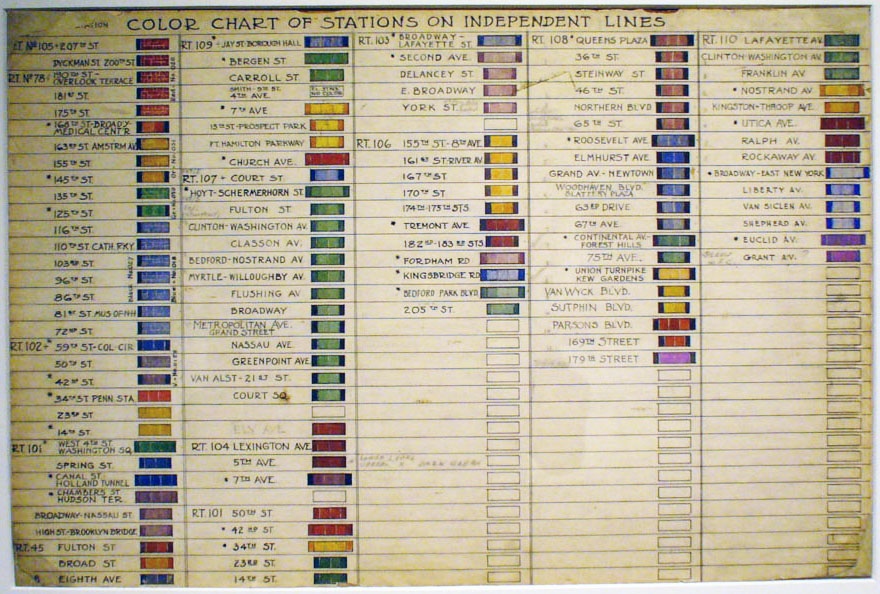 COLOR CHART OF STATIONS ON INDEPENDENT LINES
RT. Nº 105 • 207TH ST.
DYCKMAN ST. 200TH ST
RT. Nº 78 • 190TH ST -
OVERLOOK TERRACE
181ST ST.
175TH ST
* 168TH ST - BROADY-
MEDICAL CENT'R
163RD ST. AMSTRM AV.
155TH ST
* 145TH ST
135TH ST.
* 125TH ST
116TH ST
110TH ST CATH. PKY
103RD ST
96TH ST.
86TH ST
81ST ST. MUS OF N H
72ND ST.
RT. 102 * 59TH ST - COL-CIR
50TH ST.
* 42ND ST.
* 34TH ST PENN STA.
23RD ST
* 14TH ST.
RT. 101 * WEST 4TH ST.
WASHINGTON SQ.
SPRING ST.
* CANAL ST.
HOLLAND TUNNEL
* CHAMBERS ST
HUDSON TER.
BROADWAY-NASSAU ST.
HIGH ST.-BROOKLYN BRIDGE
RT. 45 FULTON ST
BROAD ST
EIGHTH AVE
RT. 109 * JAY ST. BOROUGH HALL
* BERGEN ST.
CARROLL ST.
SMITH - 9TH ST.
4TH AVE.
EL. STA'S
NO COLOR
* 7TH AVE
15TH ST - PROSPECT PARK
FT. HAMILTON PARKWAY
* CHURCH AVE.
RT. 107 * COURT ST.
* HOYT-SCHERMERHORN ST.
FULTON ST.
CLINTON-WASHINGTON AV.
CLASSON AV.
BEDFORD-NOSTRAND AV.
MYRTLE-WILLOUGHBY AV.
FLUSHING AV
BROADWAY
METROPOLITAN AVE.
GRAND STREET
NASSAU AVE.
GREENPOINT AVE
VAN ALST - 21ST ST.
COURT SQ.
ELY AVE
RT. 104 LEXINGTON AVE.
5TH AVE
* 7TH AVE.
RT. 101 50TH ST.
* 42ND ST.
* 34TH ST.
23RD ST.
14TH ST.
RT. 103 * BROADWAY-
LAFAYETTE ST.
* SECOND AVE.
DELANCEY ST.
E. BROADWAY
YORK ST.
RT. 106 155TH ST - 8TH AVE.
161ST ST - RIVER AV
167TH ST
170TH ST
174TH - 175TH STS
* TREMONT AVE
182ND - 183RD STS.
* FORDHAM RD
* KINGSBRIDGE RD
* BEDFORD PARK BLVD.
205TH ST.
RT. 108 * QUEENS PLAZA
36TH ST.
STEINWAY ST
46TH ST.
NORTHERN BLVD
65TH ST.
* ROOSEVELT AVE.
ELMHURST AVE
GRAND AV. - NEWTOWN
WOODHAVEN BLVD.
SLATTERY PLAZA
63RD DRIVE
67TH AV.
* CONTINENTAL AV.-
FOREST HILLS
75TH AVE.
* UNION TURNPIKE
KEW GARDENS
VAN WYCK BLVD.
SUTPHIN BLVD.
PARSONS BLVD.
169TH STREET
179TH STREET
RT. 110 LAFAYETTE AV.
CLINTON-WASHINGTON AV.
FRANKLIN AV.
* NOSTRAND AV.
KINGSTON-THROOP AVE.
* UTICA AVE.
RALPH AV.
ROCKAWAY AV.
* BROADWAY-EAST NEW YORK
LIBERTY AV.
VAN SICLEN AV.
SHEPHERD AV.
* EUCLID AV.
GRANT AV.